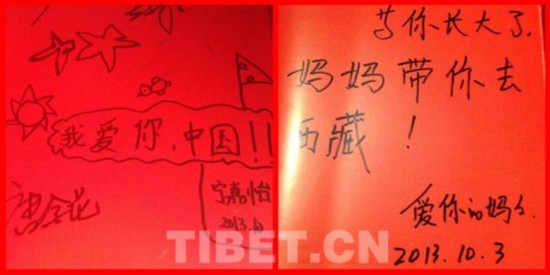 我爱你,中国!!
宁嘉怡
2013.10
等你长大了,
妈妈带你去
西藏!
爱你的妈妈
2013.10.3
TIBET.CN